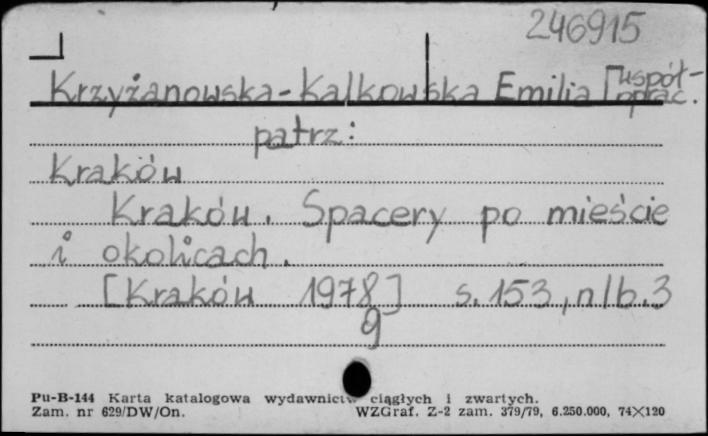 246915
Krzyżanowska-Kalkowska Emilia [współ-
oprac.
patrz:
Kraków
Kraków. Spacery po mieście
i okolicach.
[Kraków 1978] s. 153, nlb. 3
9
Pu-B-144 Karta katalogowa wydawnictw ciągłych i zwartych.
Zam. nr 629/DW/On. WZGraf. Z-2 zam. 379/79, 6.250.000, 74×120